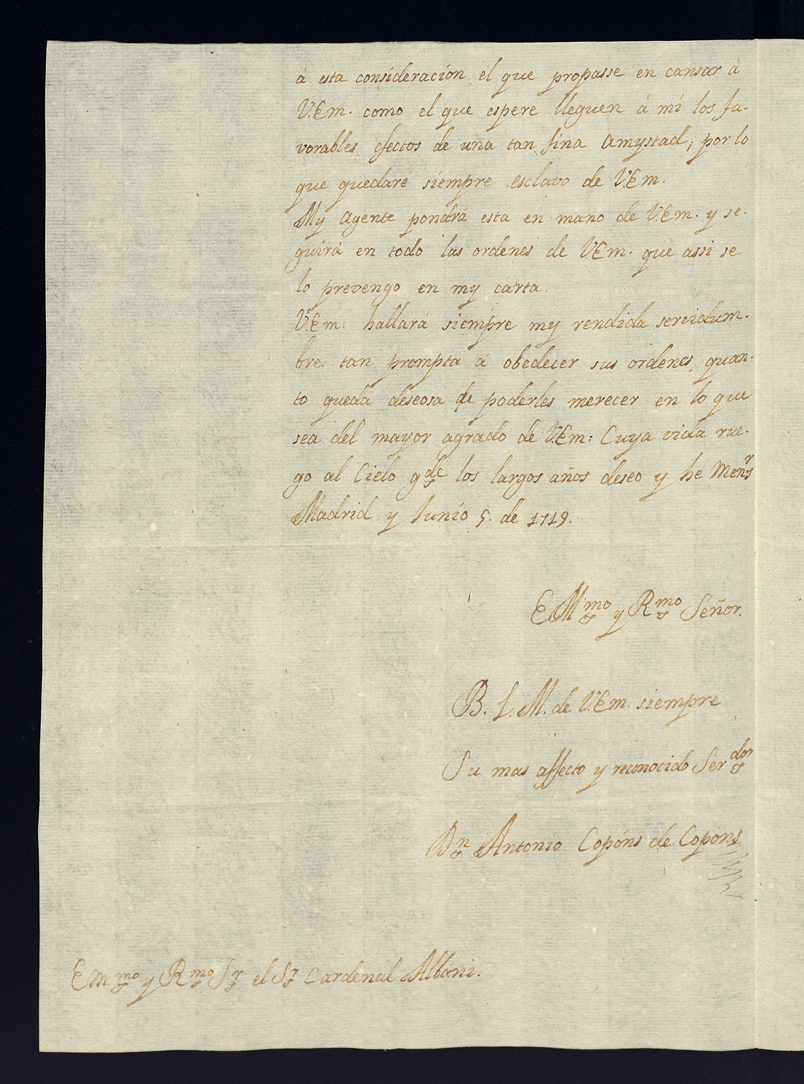 á esta consideración él que propasse en cansar á
V.Em. como el que espere lleguen á mi los fa-
vorables efectos de una tan fina Amystad; por lo
que quedaré siempre esclavo de V.Em.
My Agente pondrá esta en mano de V.Em. y se-
guirá en todo las ordenes de V.Em. que assi se
lo prevengo en my carta.
V.Em. hallará siempre my rendida servidum-
bre tan prompta á obedecer sus ordenes, quan-
to queda deseosa de poderles merecer en lo que
sea del mayor agrado de V.Em: Cuya vida rue-
go al Cielo gde los largos años deseo y he Menr
Madrid y Junio 5. de 1719.
EMmo y Rmo Señor.
B. L. M. de V.Em. siempre
Su mas affecto y reconocido Serdor
Dn Antonio Copóns de Copons
Emmo y Rmo Sr el Sr Cardenal Albáni.